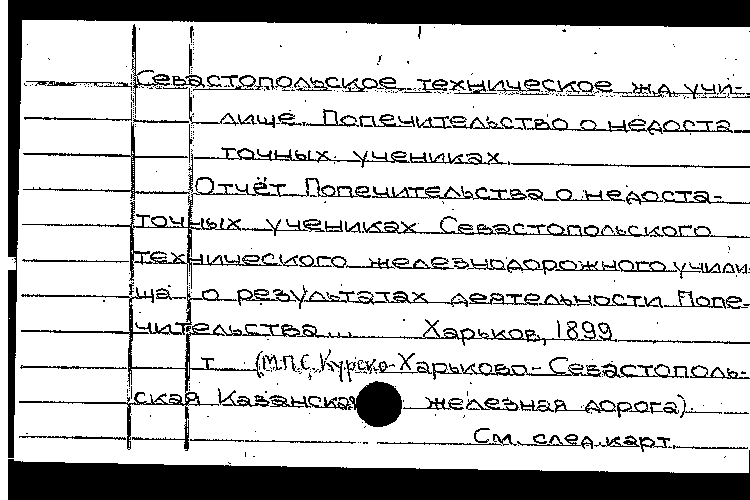 Севастопольское техническое жд учи-
лище. Попечительство о недоста
точных учениках.
Отчёт Попечительства о недоста-
точных учениках Севастопольского
технического железнодорожного учили-
ща о результатах деятельности Попе-
чительства... Харьков, 1899
т (М.П.С. Курско-Харьково-Севастополь-
ская Казанская железная дорога).
См. след. карт.